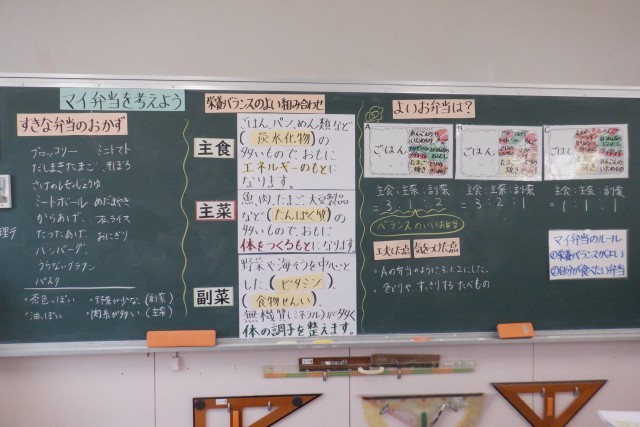 マイ弁当を考えよう
すきな弁当のおかず
ブロッコリー ミニトマト
だしまきたまご そぼろ
ミートボール めだまやき
からあげ
たつたあげ おにぎり
ハンバーグ
パスタ
・茶色っぽい ・野菜が少ない(副菜)
・油っぽい ・肉系が多い(主菜)
栄養バランスのよい組み合わせ
主食
ごはん、パン、めん類など
(炭水化物)の
多いもので、おもに
エネルギーのもとに
なります。
主菜
魚、肉、たまご、大豆製品
など(たんぱく質)の
多いもので、おもに
体をつくるもとになります
副菜
野菜や海そうを中心と
した、(ビタミン)、
(食物せんい)、
無機質(ミネラル)が多く
体の調子を整えます。
よいお弁当は?
A
ごはん
B
ごはん
C
ごはん
主食:主菜:副菜
=3:1:2
主食:主菜:副菜
=3:2:1
主食:主菜:副菜
=1:1:1
バランスのいいお弁当
工夫した点 気をつけた点
・Aの弁当のように3:1:2にした。
マイ弁当のルール
①栄養バランスがよい
②自分が食べたい弁当